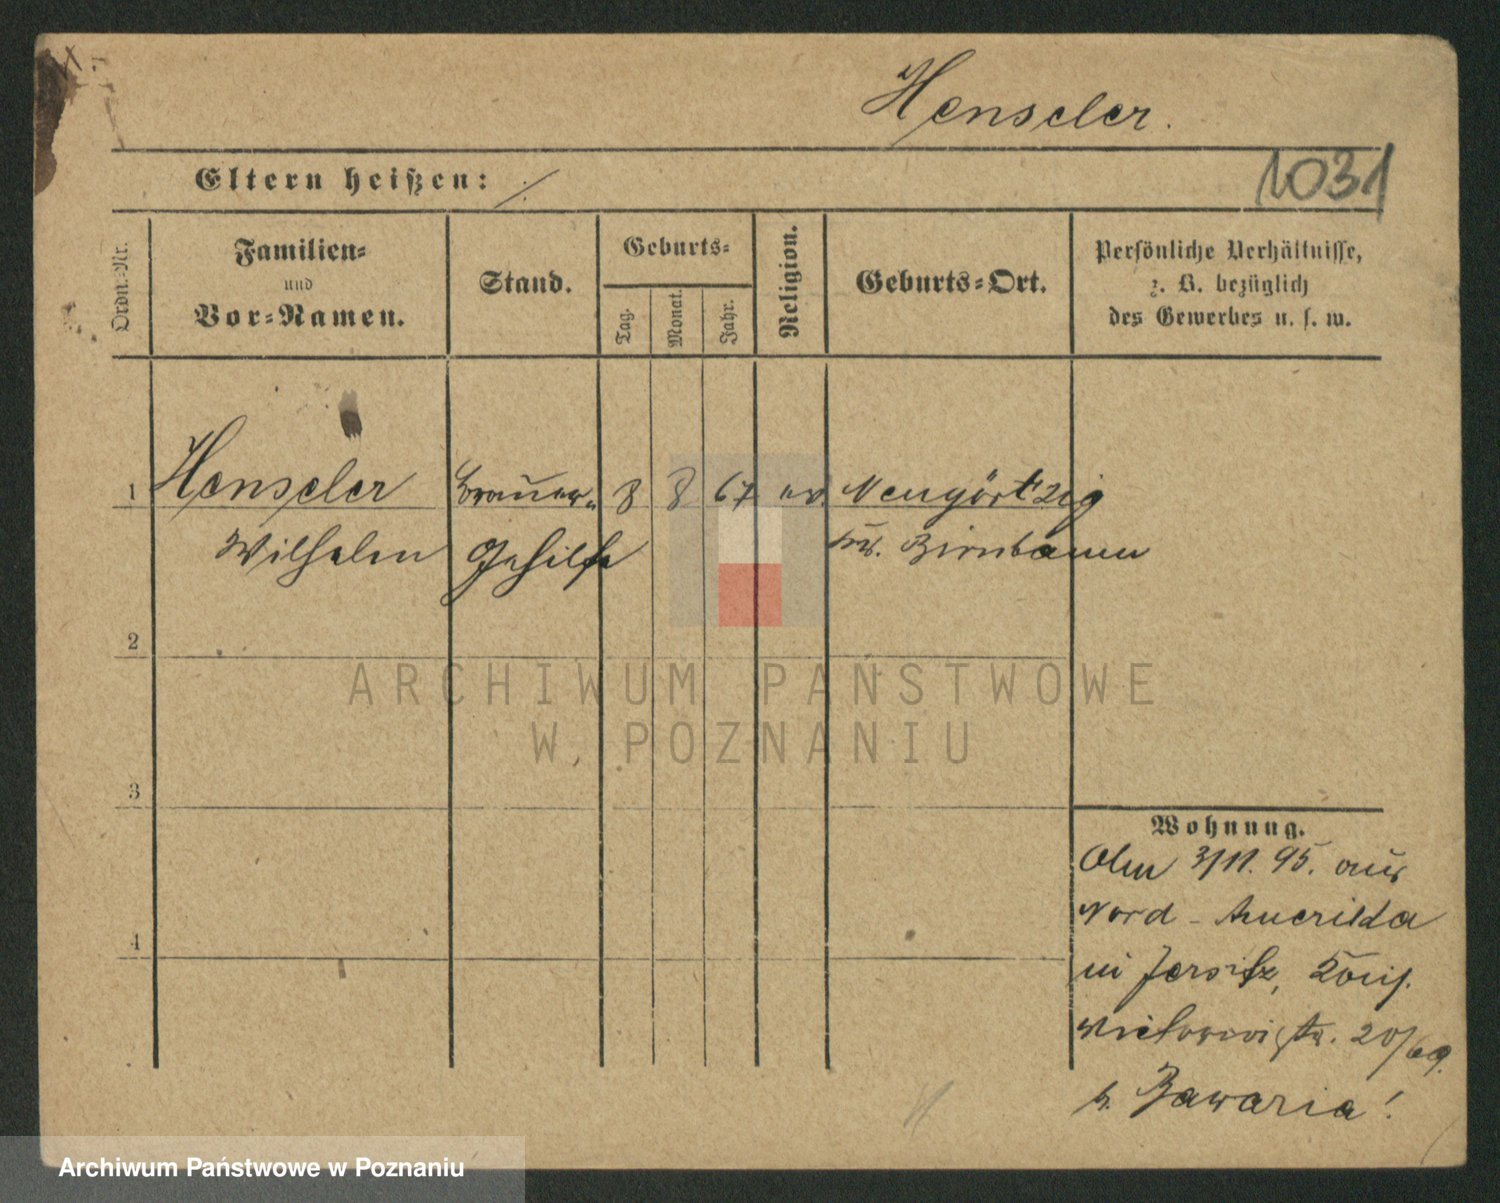 Henseler.
1031
Eltern heißen: ./.
Ordn.-Nr.
Familien-
und
Vor-Namen.
Stand.
Geburts-
Tag.
Monat.
Jahr.
Religion.
Geburts-Ort.
Persönliche Verhältnisse,
z. B. bezüglich
des Gewerbes u. s. w.
1 Henseler Brauer- 8 8 67 ev. Neugörtzig
Wilhelm Gehilfe Kr. Birnbaum
2
3
4
Wohnung.
Am 3/11. 95. aus
Nord-Amerika
in Jersitz,
Victoriastr. 20/
b. Bawaria!
ARCHIWUM PAŃSTWOWE
W POZNANIU
Archiwum Państwowe w Poznaniu